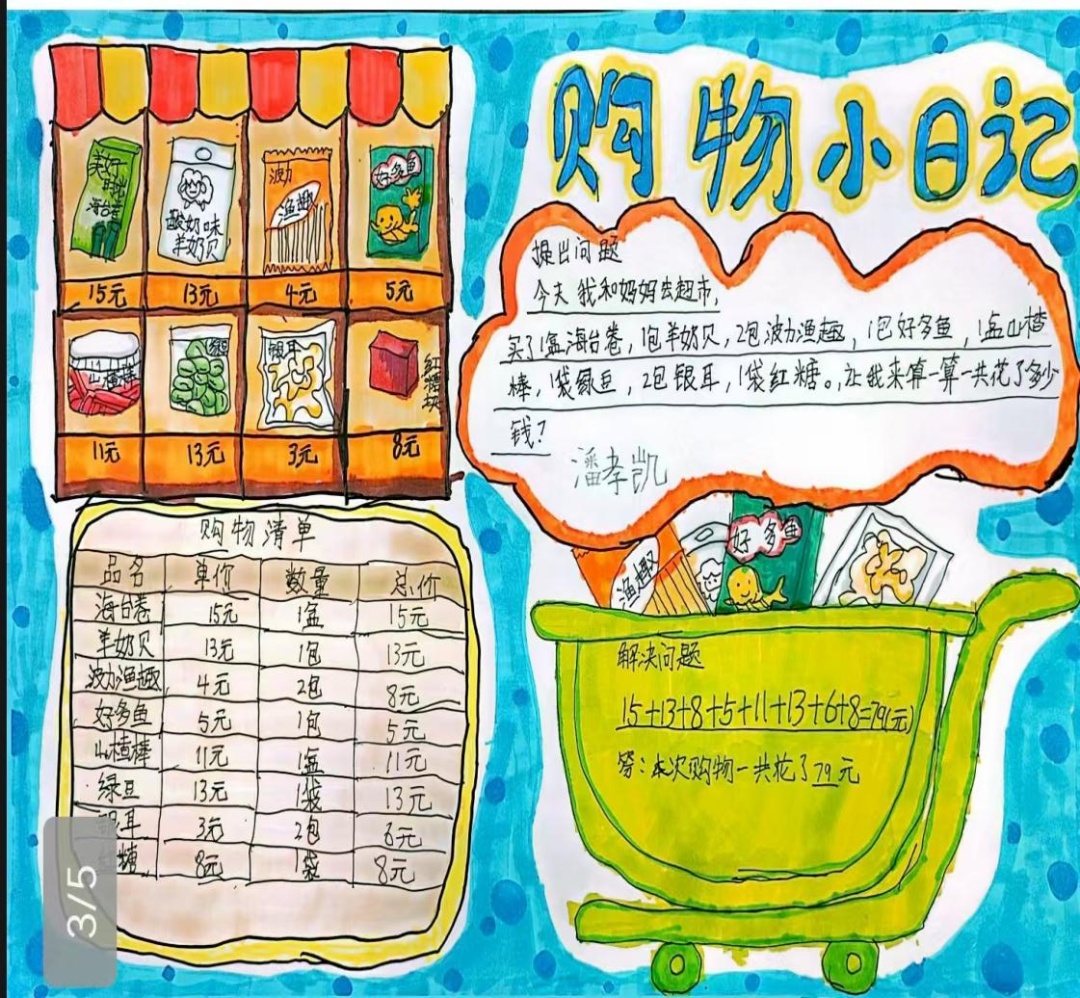 购物小日记
美好时光
海台卷
酸奶味
羊奶贝
波力
渔趣
好多鱼
15元 13元 4元 5元
山楂棒
绿豆
银耳
红糖块
11元 13元 3元 8元
提出问题
今天我和妈妈去超市，
买了1盒海台卷，1包羊奶贝，2包波力渔趣，1包好多鱼，1盒山楂
棒，1袋绿豆，2包银耳，1袋红糖。让我来算一算一共花了多少
钱？
潘孝凯
购物清单
品名 单价 数量 总价
海台卷 15元 1盒 15元
羊奶贝 13元 1包 13元
波力渔趣 4元 2包 8元
好多鱼 5元 1包 5元
山楂棒 11元 1盒 11元
绿豆 13元 1袋 13元
银耳 3元 2包 6元
红糖 8元 1袋 8元
渔趣
好多鱼
解决问题
15+13+8+5+11+13+6+8=79(元)
答：本次购物一共花了79元
3/5